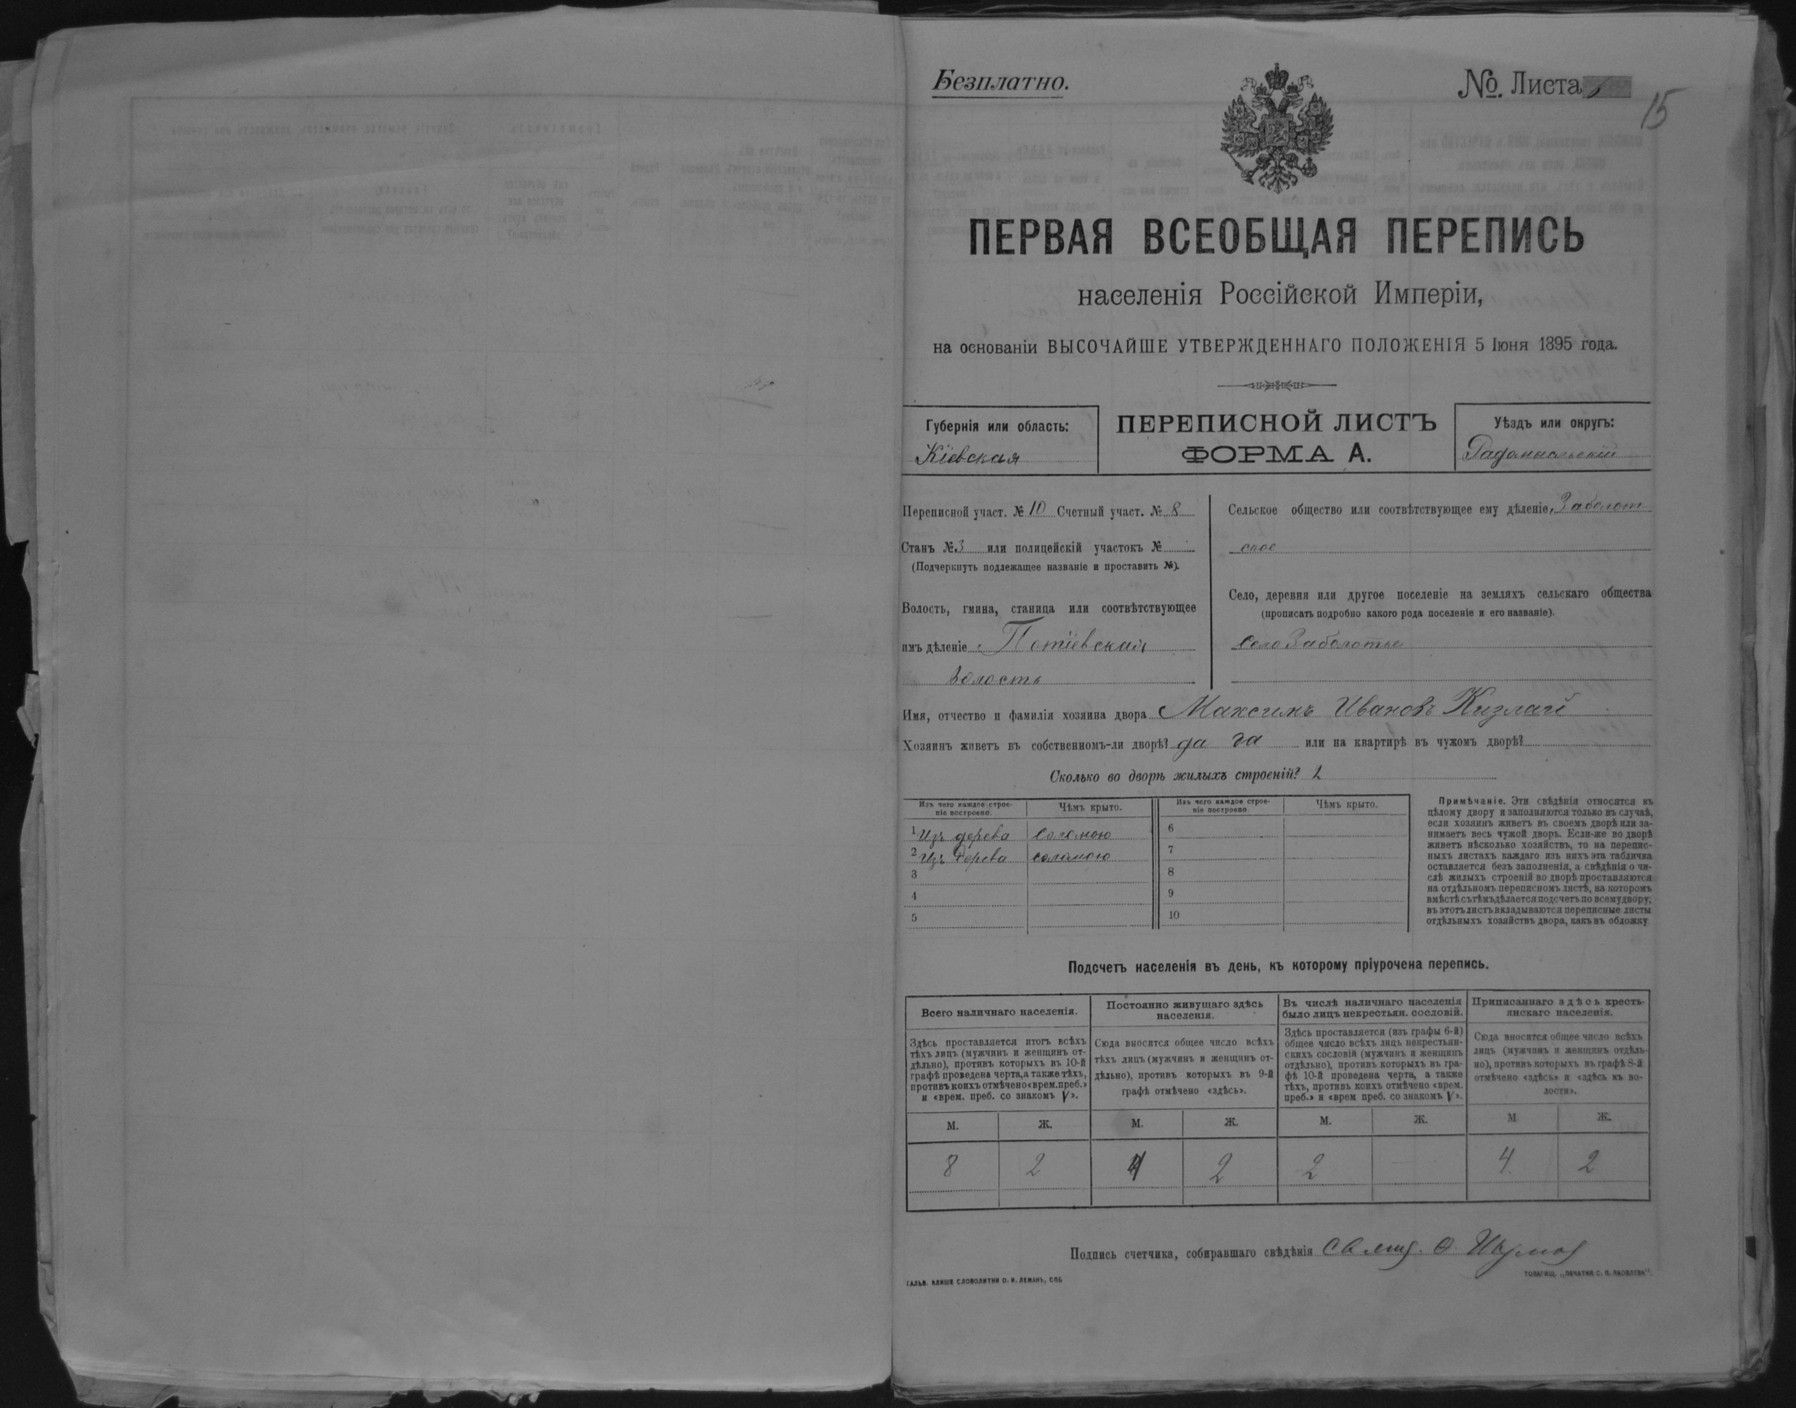 Безплатно.
№. Листа
15
ПЕРВАЯ ВСЕОБЩАЯ ПЕРЕПИСЬ
населенія Россійской Имперіи,
на основаніи ВЫСОЧАЙШЕ УТВЕРЖДЕННАГО ПОЛОЖЕНІЯ 5 Іюня 1895 года.
Губернія или область:
Кіевская
ПЕРЕПИСНОЙ ЛИСТЪ
ФОРМА А.
Уѣздъ или округъ:
Радомысльскій
Переписной участ. № 10 Счетный участ. № 8
Станъ № 3 или полицейскій участокъ №
(Подчеркнуть подлежащее названіе и проставить №).
Волость, гмина, станица или соотвѣтствующее
имъ дѣленіе Потіевская
волость
Сельское общество или соотвѣтствующее ему дѣленіе, Заболот
ское
Село, деревня или другое поселеніе на земляхъ сельскаго общества
(прописать подробно какого рода поселеніе и его названіе).
Село Заболотье
Имя, отчество и фамилія хозяина двора Максимъ Ивановъ
Хозяинъ живетъ въ собственномъ-ли дворѣ? да да или на квартирѣ въ чужомъ дворѣ?
Сколько во дворѣ жилыхъ строеній? 2
Изъ чего каждое строе-
ніе построено.
Чѣмъ крыто.
Изъ чего каждое строе-
ніе построено
Чѣмъ крыто.
1 Изъ дерева соломою
2 Изъ дерева соломою
3
4
5
6
7
8
9
10
Примѣчаніе. Эти свѣдѣнія относятся къ
цѣлому двору и заполняются только въ случаѣ,
если хозяинъ живетъ въ своемъ дворѣ или за-
нимаетъ весь чужой дворъ. Если-же во дворѣ
живетъ нѣсколько хозяйствъ, то на перепис-
ныхъ листахъ каждаго изъ нихъ эта табличка
оставляется безъ заполненія, а свѣдѣнія о чи-
слѣ жилыхъ строеній во дворѣ проставляются
на отдѣльномъ переписномъ листѣ, на которомъ
вмѣстѣ съ тѣмъ дѣлается подсчетъ по всему двору;
въ этотъ листъ вкладываются переписные листы
отдѣльныхъ хозяйствъ двора, какъ въ обложку
Подсчетъ населенія въ день, къ которому пріурочена перепись.
Всего наличнаго населенія.
Здѣсь проставляется итогъ всѣхъ
тѣхъ лицъ (мужчинъ и женщинъ от-
дѣльно), противъ которыхъ въ 10-й
графѣ проведена черта, а также тѣхъ,
противъ коихъ отмѣчено «врем. преб.»
и «врем. преб. со знакомъ V».
Постоянно живущаго здѣсь
населенія.
Сюда вносится общее число всѣхъ
тѣхъ лицъ (мужчинъ и женщинъ от-
дѣльно), противъ которыхъ въ 9-й
графѣ отмѣчено «здѣсь».
Въ числѣ наличнаго населенія
было лицъ некрестьян. сословій.
Здѣсь проставляется (изъ графы 6-й)
общее число всѣхъ лицъ некрестьян-
скихъ сословій (мужчинъ и женщинъ
отдѣльно), противъ которыхъ въ гра-
фѣ 10-й проведена черта, а также
тѣхъ, противъ коихъ отмѣчено «врем.
преб.» и «врем преб. со знакомъ V».
Приписаннаго здѣсь кресть-
янскаго населенія.
Сюда вносится общее число всѣхъ
лицъ (мужчинъ и женщинъ отдѣль-
но), противъ которыхъ въ графѣ 8-й
отмѣчено «здѣсь» и «здѣсь къ во-
лости».
М. Ж. М. Ж. М. Ж. М Ж.
8 2 4 2 2 4 2
Подпись счетчика, собиравшаго свѣдѣнія
ГАЛЬВ. КЛИШЕ СЛОВОЛИТНИ О. И. ЛЕМАНЪ, СПБ.
ТОВАРИЩ. „ПЕЧАТНЯ С. П. ЯКОВЛЕВА".